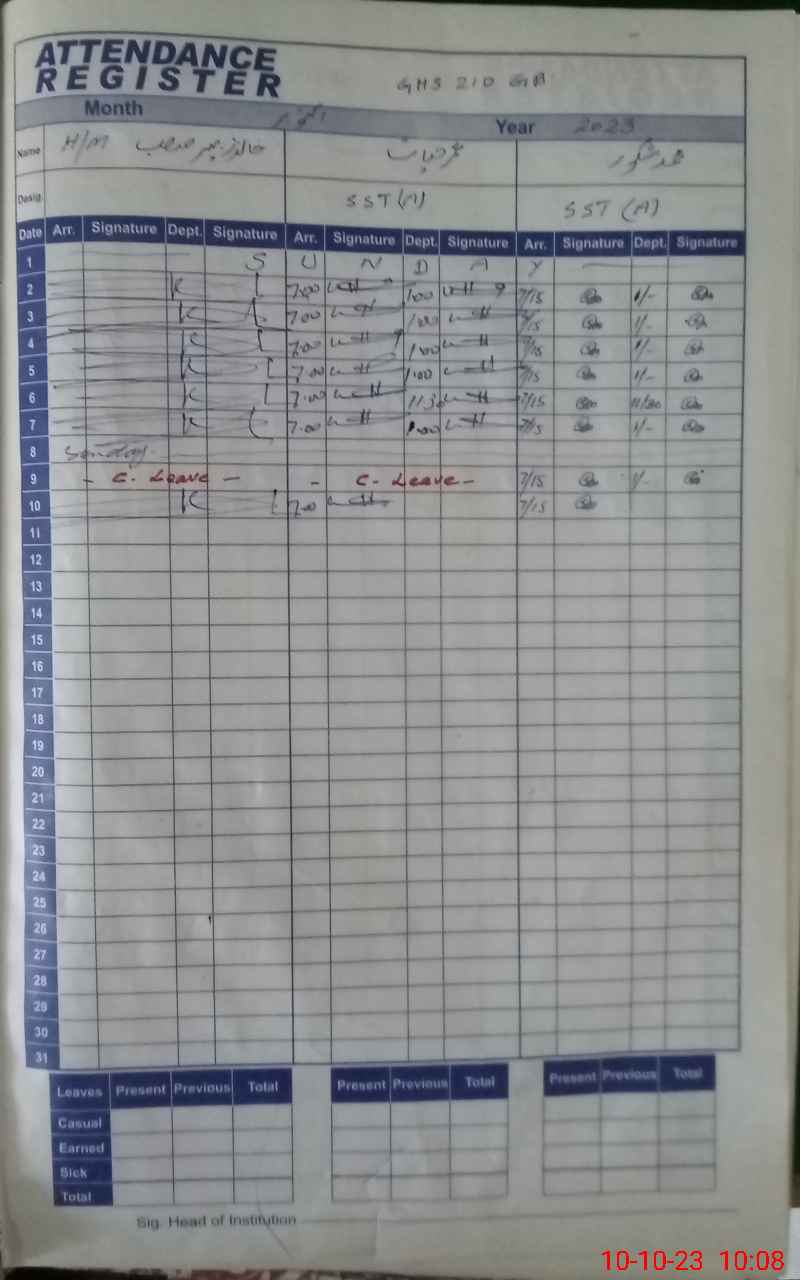 ATTENDANCE
REGISTER
GHS 210 GB
Month اکتوبر Year 2023
Name H/M
Desig. SST (A) SST (A)
Date Arr. Signature Dept. Signature Arr. Signature Dept. Signature Arr. Signature Dept. Signature
1 S U N D A Y
2 7:00 1:00 7/15 1/-
3 7:00 1:00 7/15 1/-
4 7:00 1:00 7/15 1/-
5 7:00 1:00 7/15 1/-
6 7:00 11:30 7/15 11/30
7 7:00 1:00 7/15 1/-
8 Sunday
9 - C. Leave - - C. Leave - 7/15 1/-
10 7:00 7/15
11
12
13
14
15
16
17
18
19
20
21
22
23
24
25
26
27
28
29
30
31
Leaves Present Previous Total Present Previous Total Present Previous Total
Casual
Earned
Sick
Total
Sig. Head of Institution
10-10-23 10:08